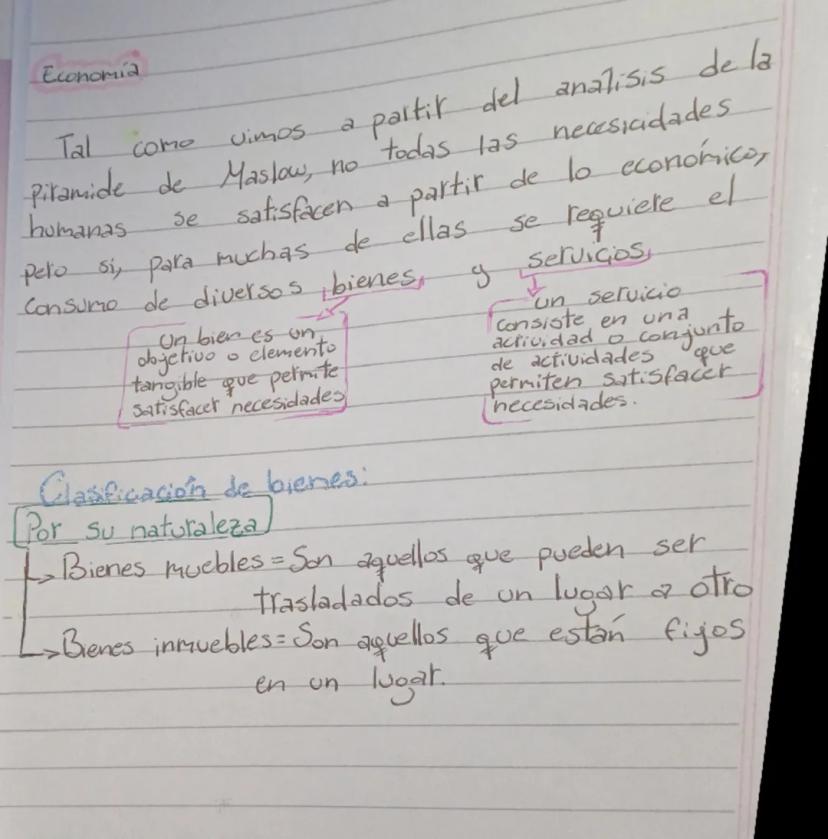 Economía
Tal como vimos a partir del analisis de la
piramide de Maslow, no todas las necesicidades
humanas se satisfacen a partir de lo económico,
pero si, para muchas de ellas se requiere el
consumo de diversos bienes, y servicios,
Un bien es un
objetivo o elemento
tangible que permite
satisfacer necesidades
un servicio
consiste en una
actividad o conjunto
de actividades que
permiten satisfacer
necesidades.
Clasificación de bienes:
Por su naturaleza
Bienes muebles = Son aquellos que pueden ser
trasladados de un lugar a otro
Bienes inmuebles = Son aquellos que están fijos
en un lugar.